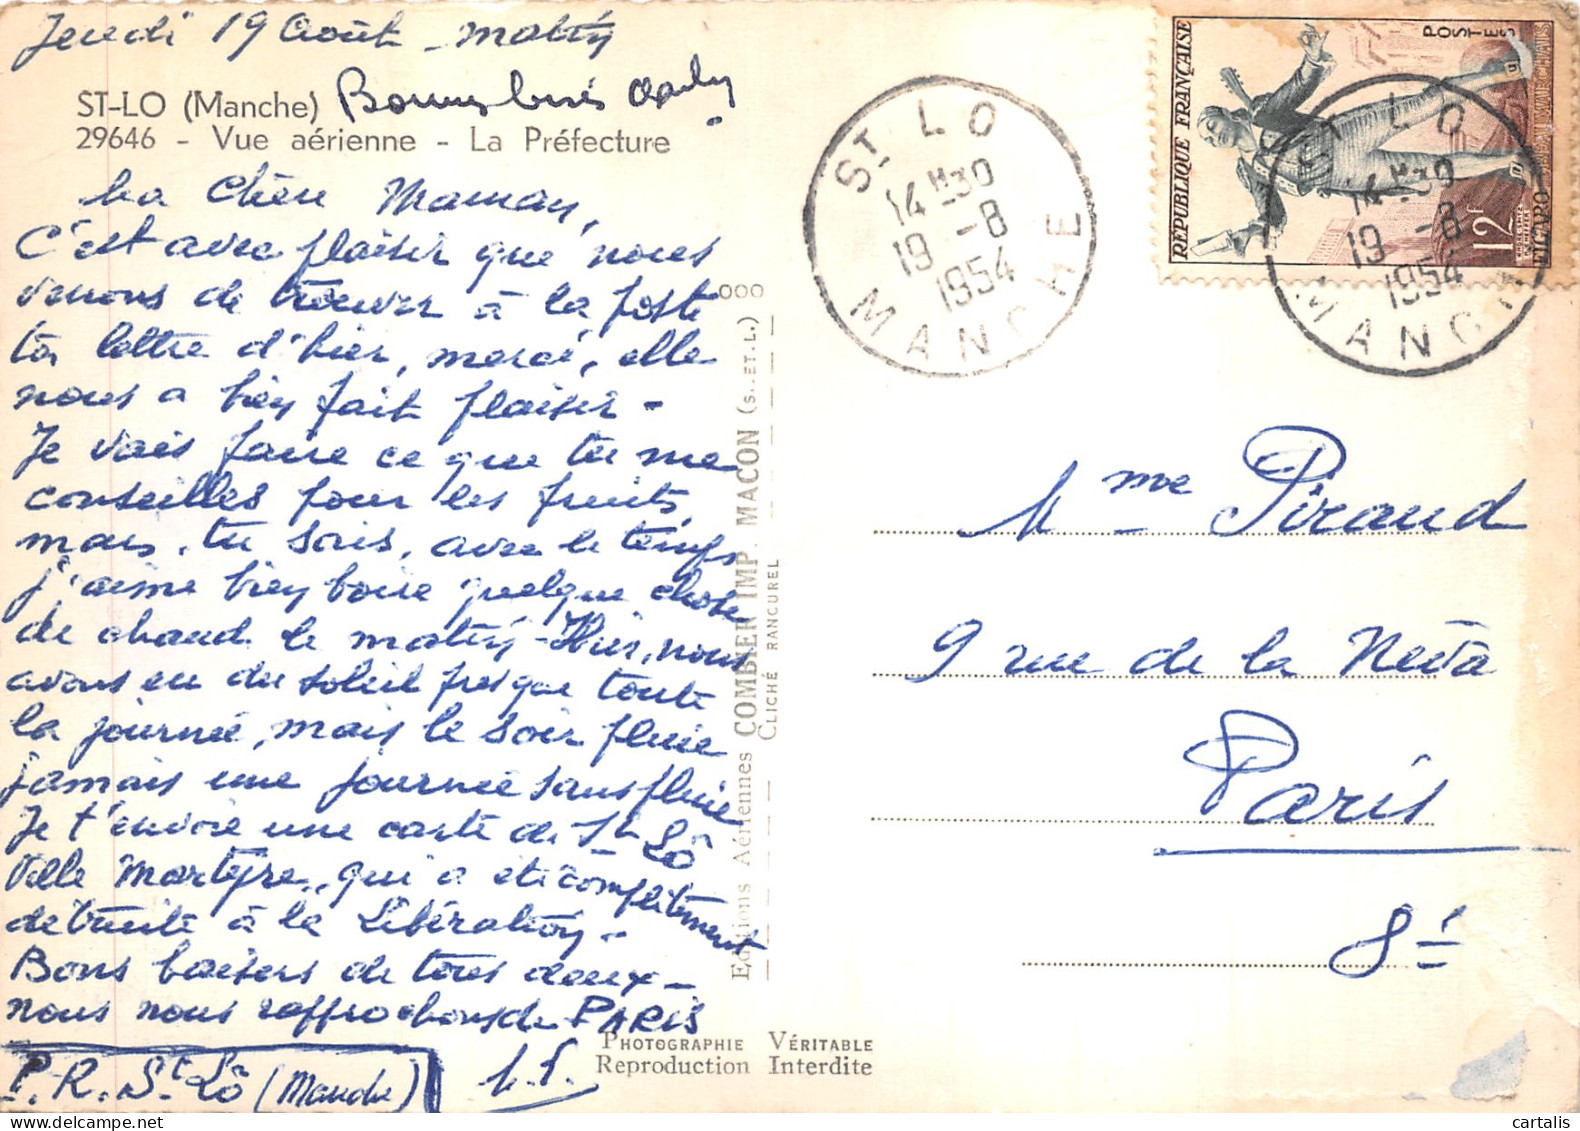 Jeudi 19 Août - matin
ST-LO (Manche) Bonnes bises
29646 - Vue aérienne - La Préfecture
Ma Chère Maman,
C'est avec plaisir que nous
venons de trouver à la poste
ta lettre d'hier, merci, elle
nous a bien fait plaisir -
Je vais faire ce que tu me
conseilles pour les fruits,
mais, tu sais, avec le temps
j'aime bien boire quelque chose
de chaud le matin - Hier, nous
avons eu du soleil presque toute
la journée, mais le soir pluie
jamais une journée sans pluie
Je t'envoie une carte de St Lô
Ville Martyre, qui a été complètement
détruite à la Libération -
Bons baisers de tous deux -
nous nous rapprochons de PARIS
P.R. St Lô (Manche)
OOO
Editions Aériennes COMBIER IMP. MACON (S.-ET-L.)
CLICHÉ RANCUREL
PHOTOGRAPHIE VÉRITABLE
Reproduction Interdite
ST LO
14 H 30
19 -8
1954
MANCHE
RÉPUBLIQUE FRANÇAISE
POSTES
12F
FIGARO-BEAUMARCHAIS
ST LO
14 H 30
19 -8
1954
MANCHE
Mme Piraud
9 rue de la Neva
Paris
8è
cartalis